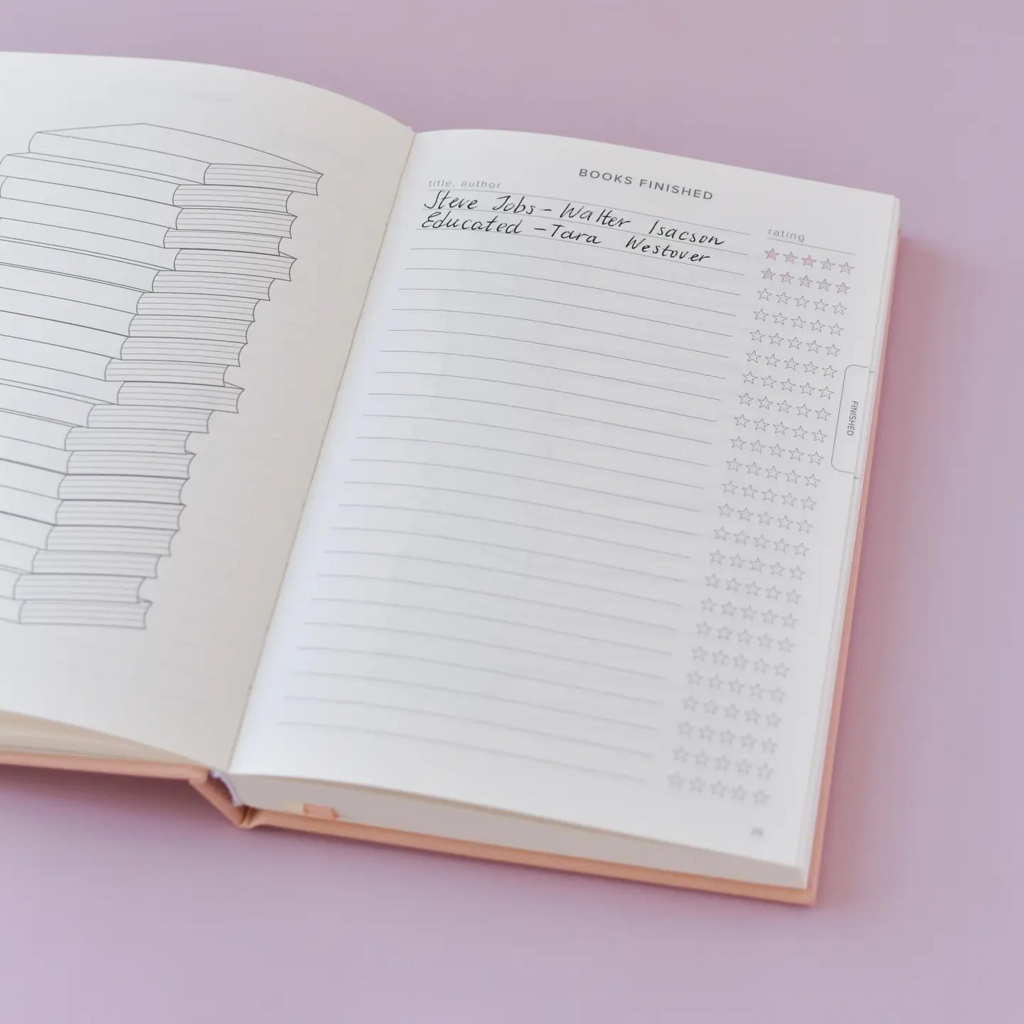 BOOKS FINISHED
title, author
rating
Steve Jobs - Walter Isacson
Educated - Tara Westover
FINISHED